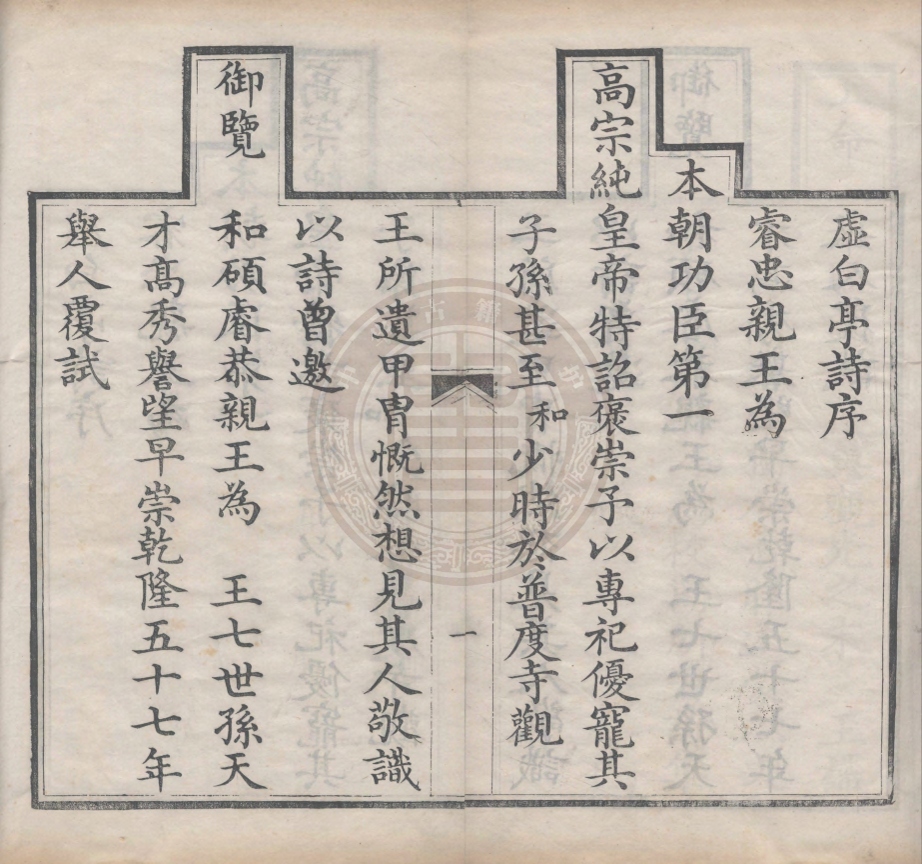 虛白亭詩序
睿忠親王為
本朝功臣第一
高宗純皇帝特詔褒崇予以專祀優寵其
子孫甚至和少時於普度寺觀
一
王所遺甲冑慨然想見其人敬識
以詩曾邀
御覽
和碩睿恭親王為 王七世孫天
才高秀譽望早崇乾隆五十七年
舉人覆試